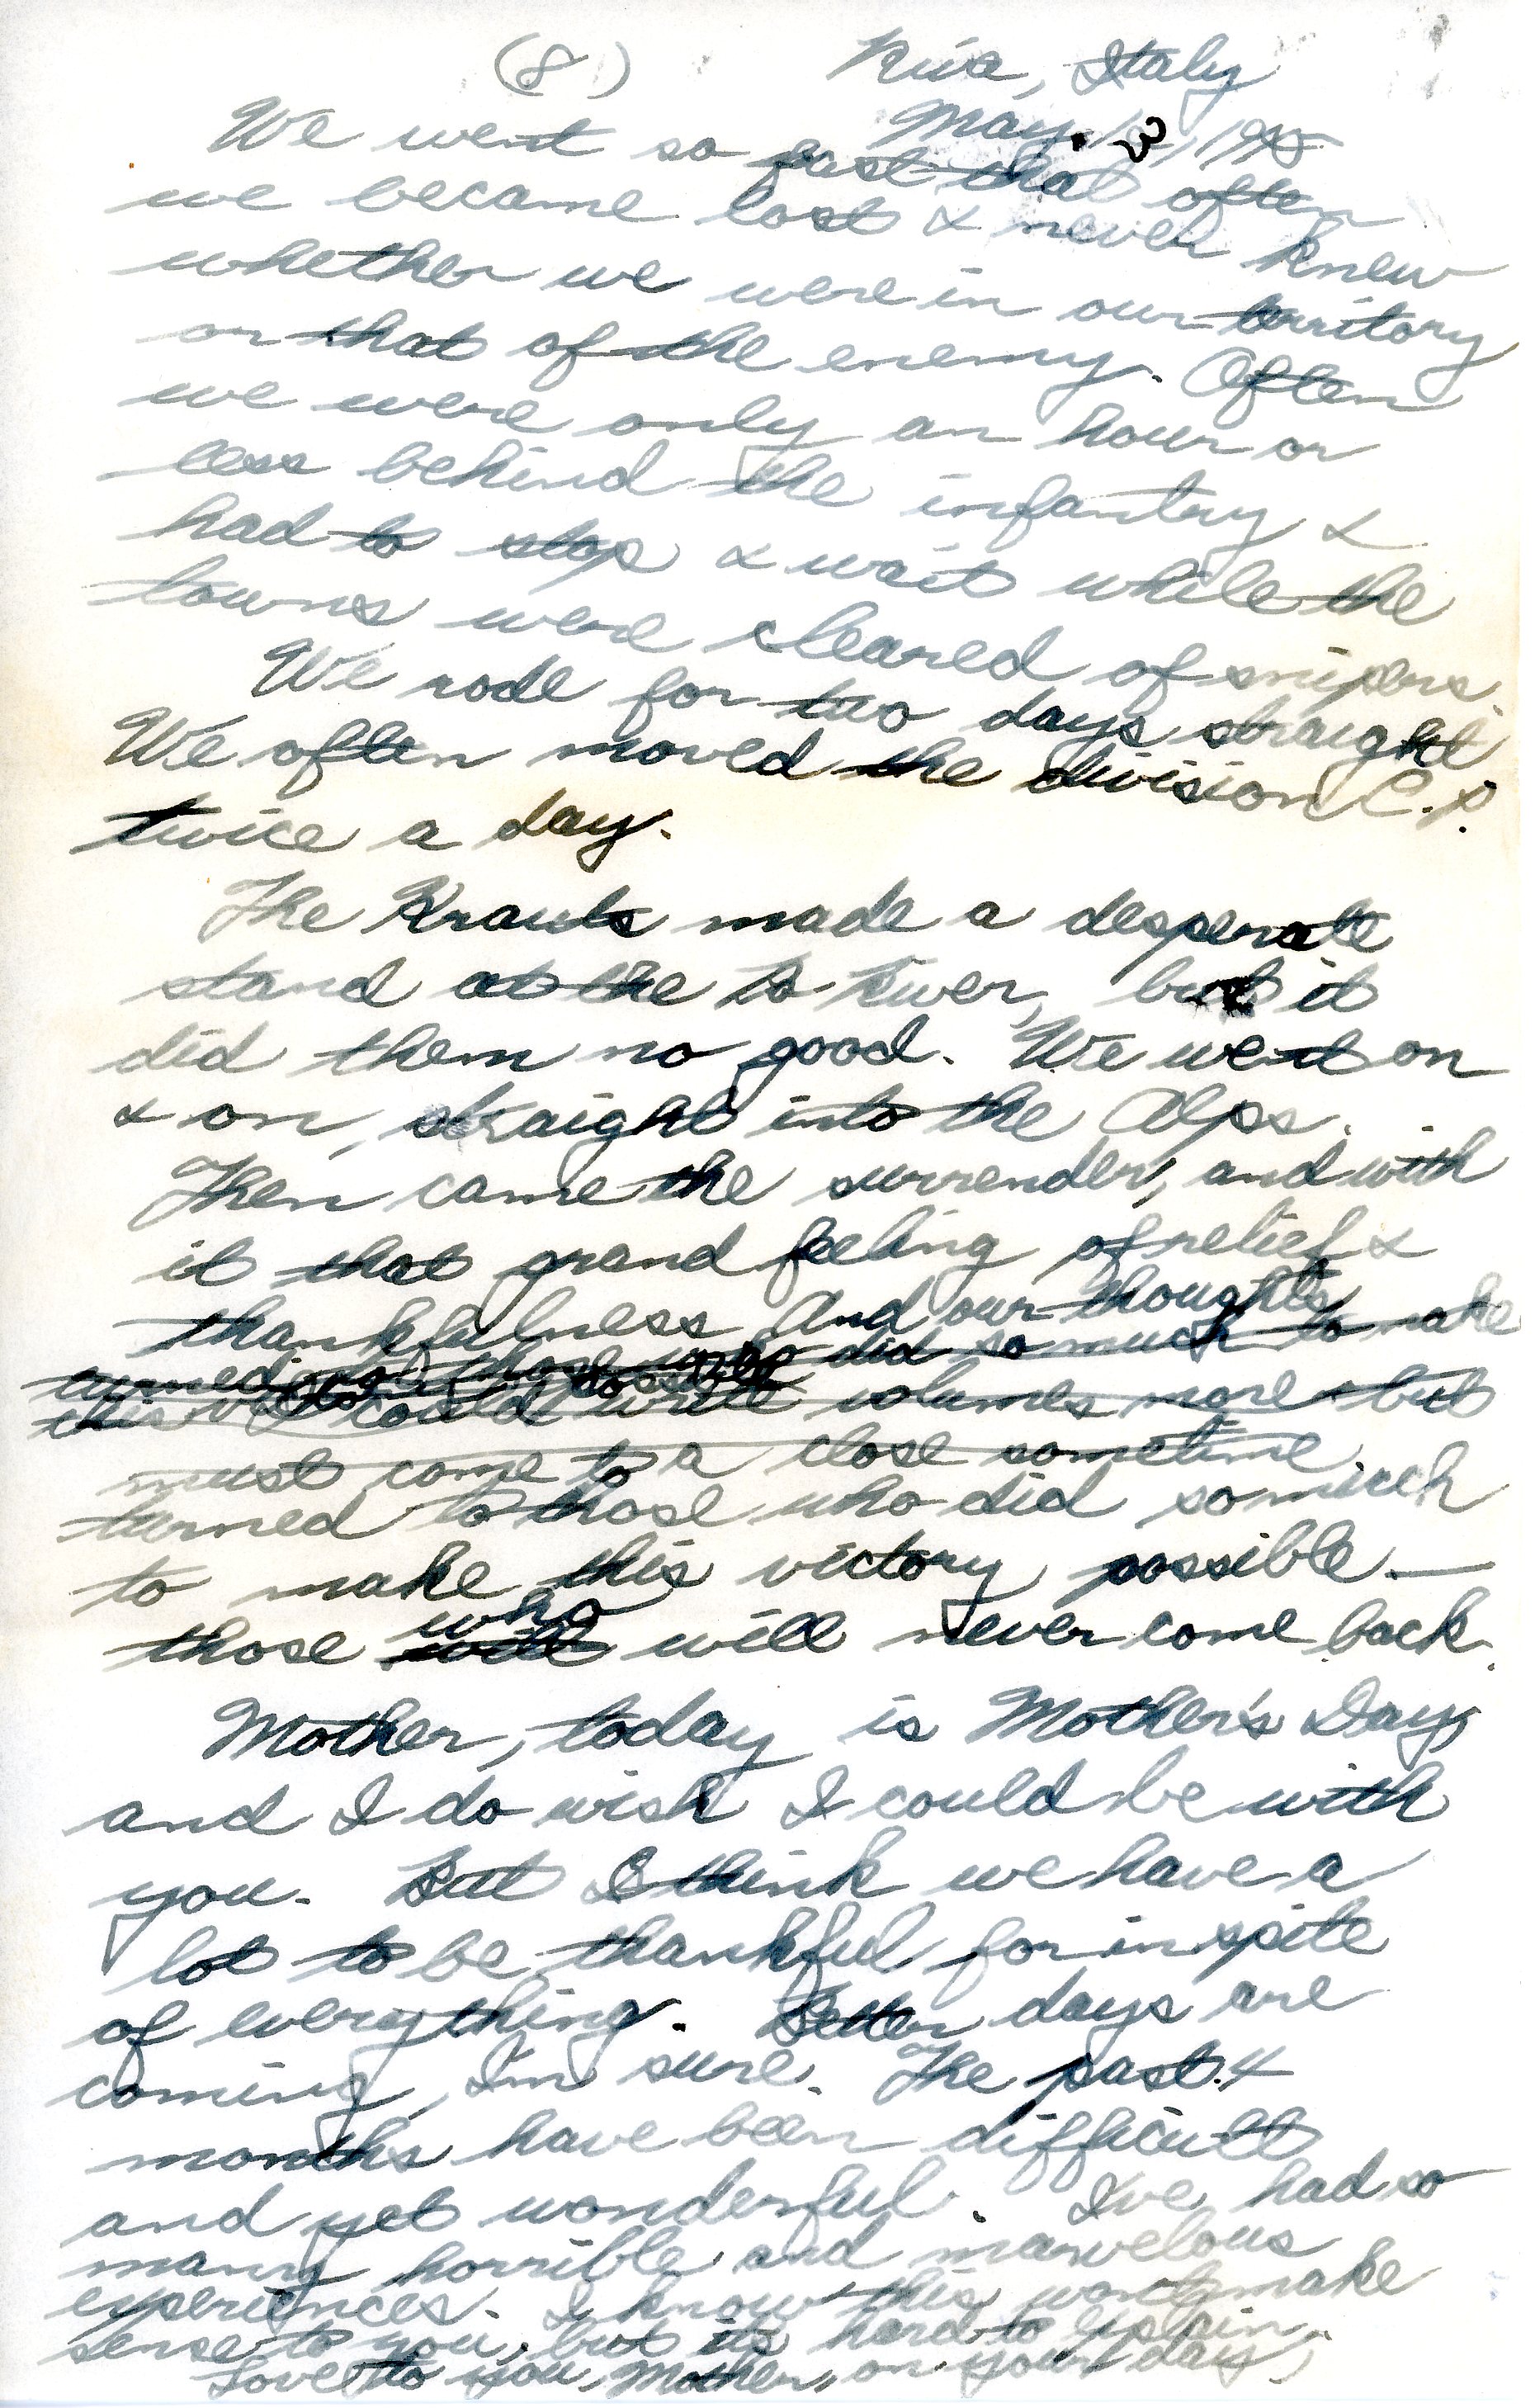 (8) Riva, Italy
May 13, 1945
We went so fast that often
we became lost & never knew
whether we were in our territory
or that of the enemy. Often
we were only an hour or
less behind the infantry &
had to stop & wait while the
towns were cleared of snipers.
We rode for two days straight
We often moved the division C.P.
twice a day.
The Krauts made a desperate
stand at the Po River, but it
did them no good. We went on
& on, straight into the Alps.
Then came the surrender, and with
it that grand feeling of relief &
thankfulness And our thoughts
turned to those who did so much to make
this I could write volumes more but
must come to a close sometime.
turned to those who did so much
to make this victory possible —
those who will never come back.
Mother, today is Mother's Day,
and I do wish I could be with
you. But I think we have a
lot to be thankful for in spite
of everything. Better days are
coming, I'm sure. The past 4
months have been difficult
and yet wonderful. I've had so
many horrible and marvelous
experiences. I know this won't make
sense to you, but its hard to explain.
Love to you, Mother, on your day,